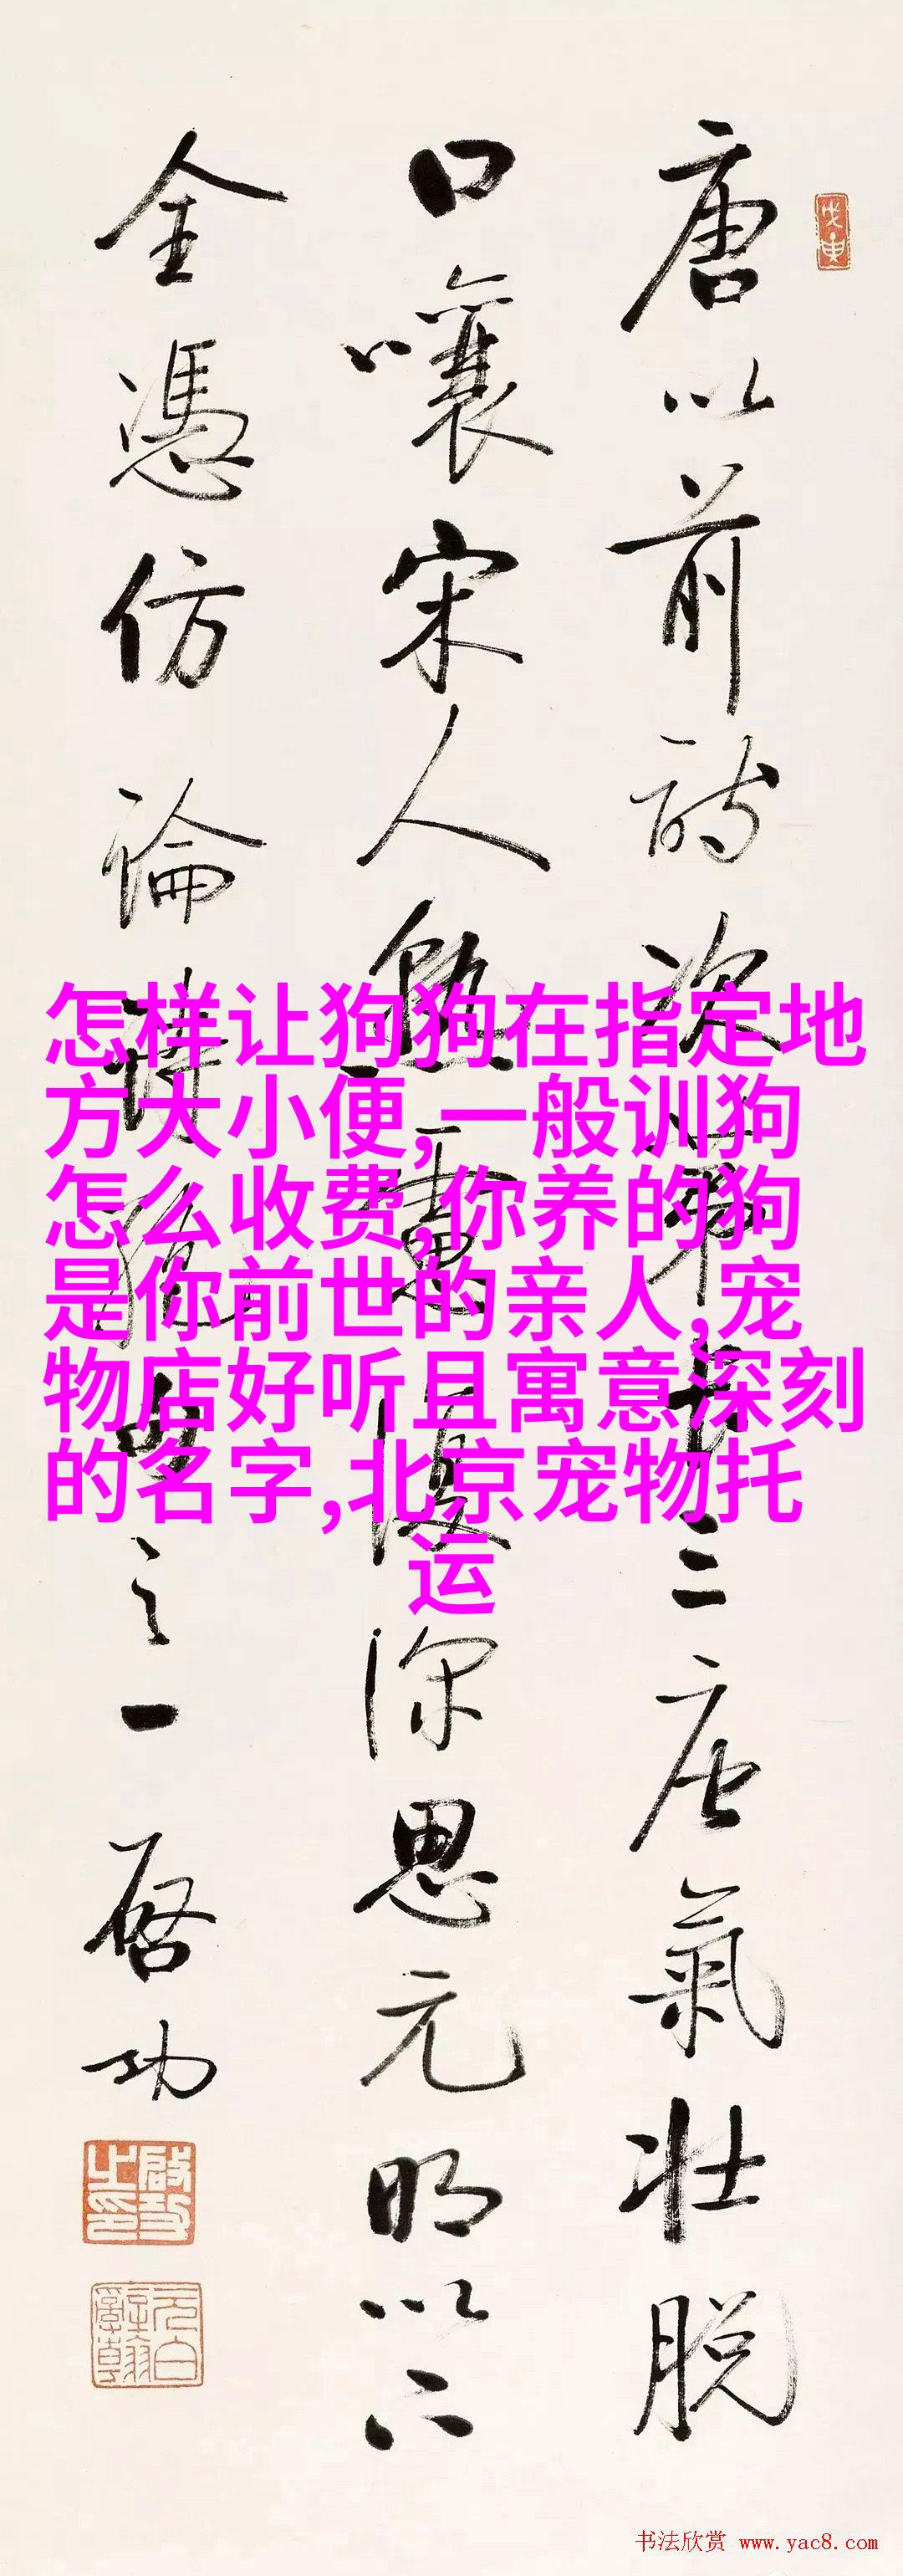 戊申
唐以前詩次第長三唐氣壯脫
口嚷宋人熟慮深思元明以下
全憑仿論詩絕句之一啓功
啟功之印
怎样让狗狗在指定地
方大小便,一般训狗
怎么收费,你养的狗
是你前世的亲人,宠
物店好听且寓意深刻
的名字,北京宠物托
运
书法欣赏 www.yac8.com